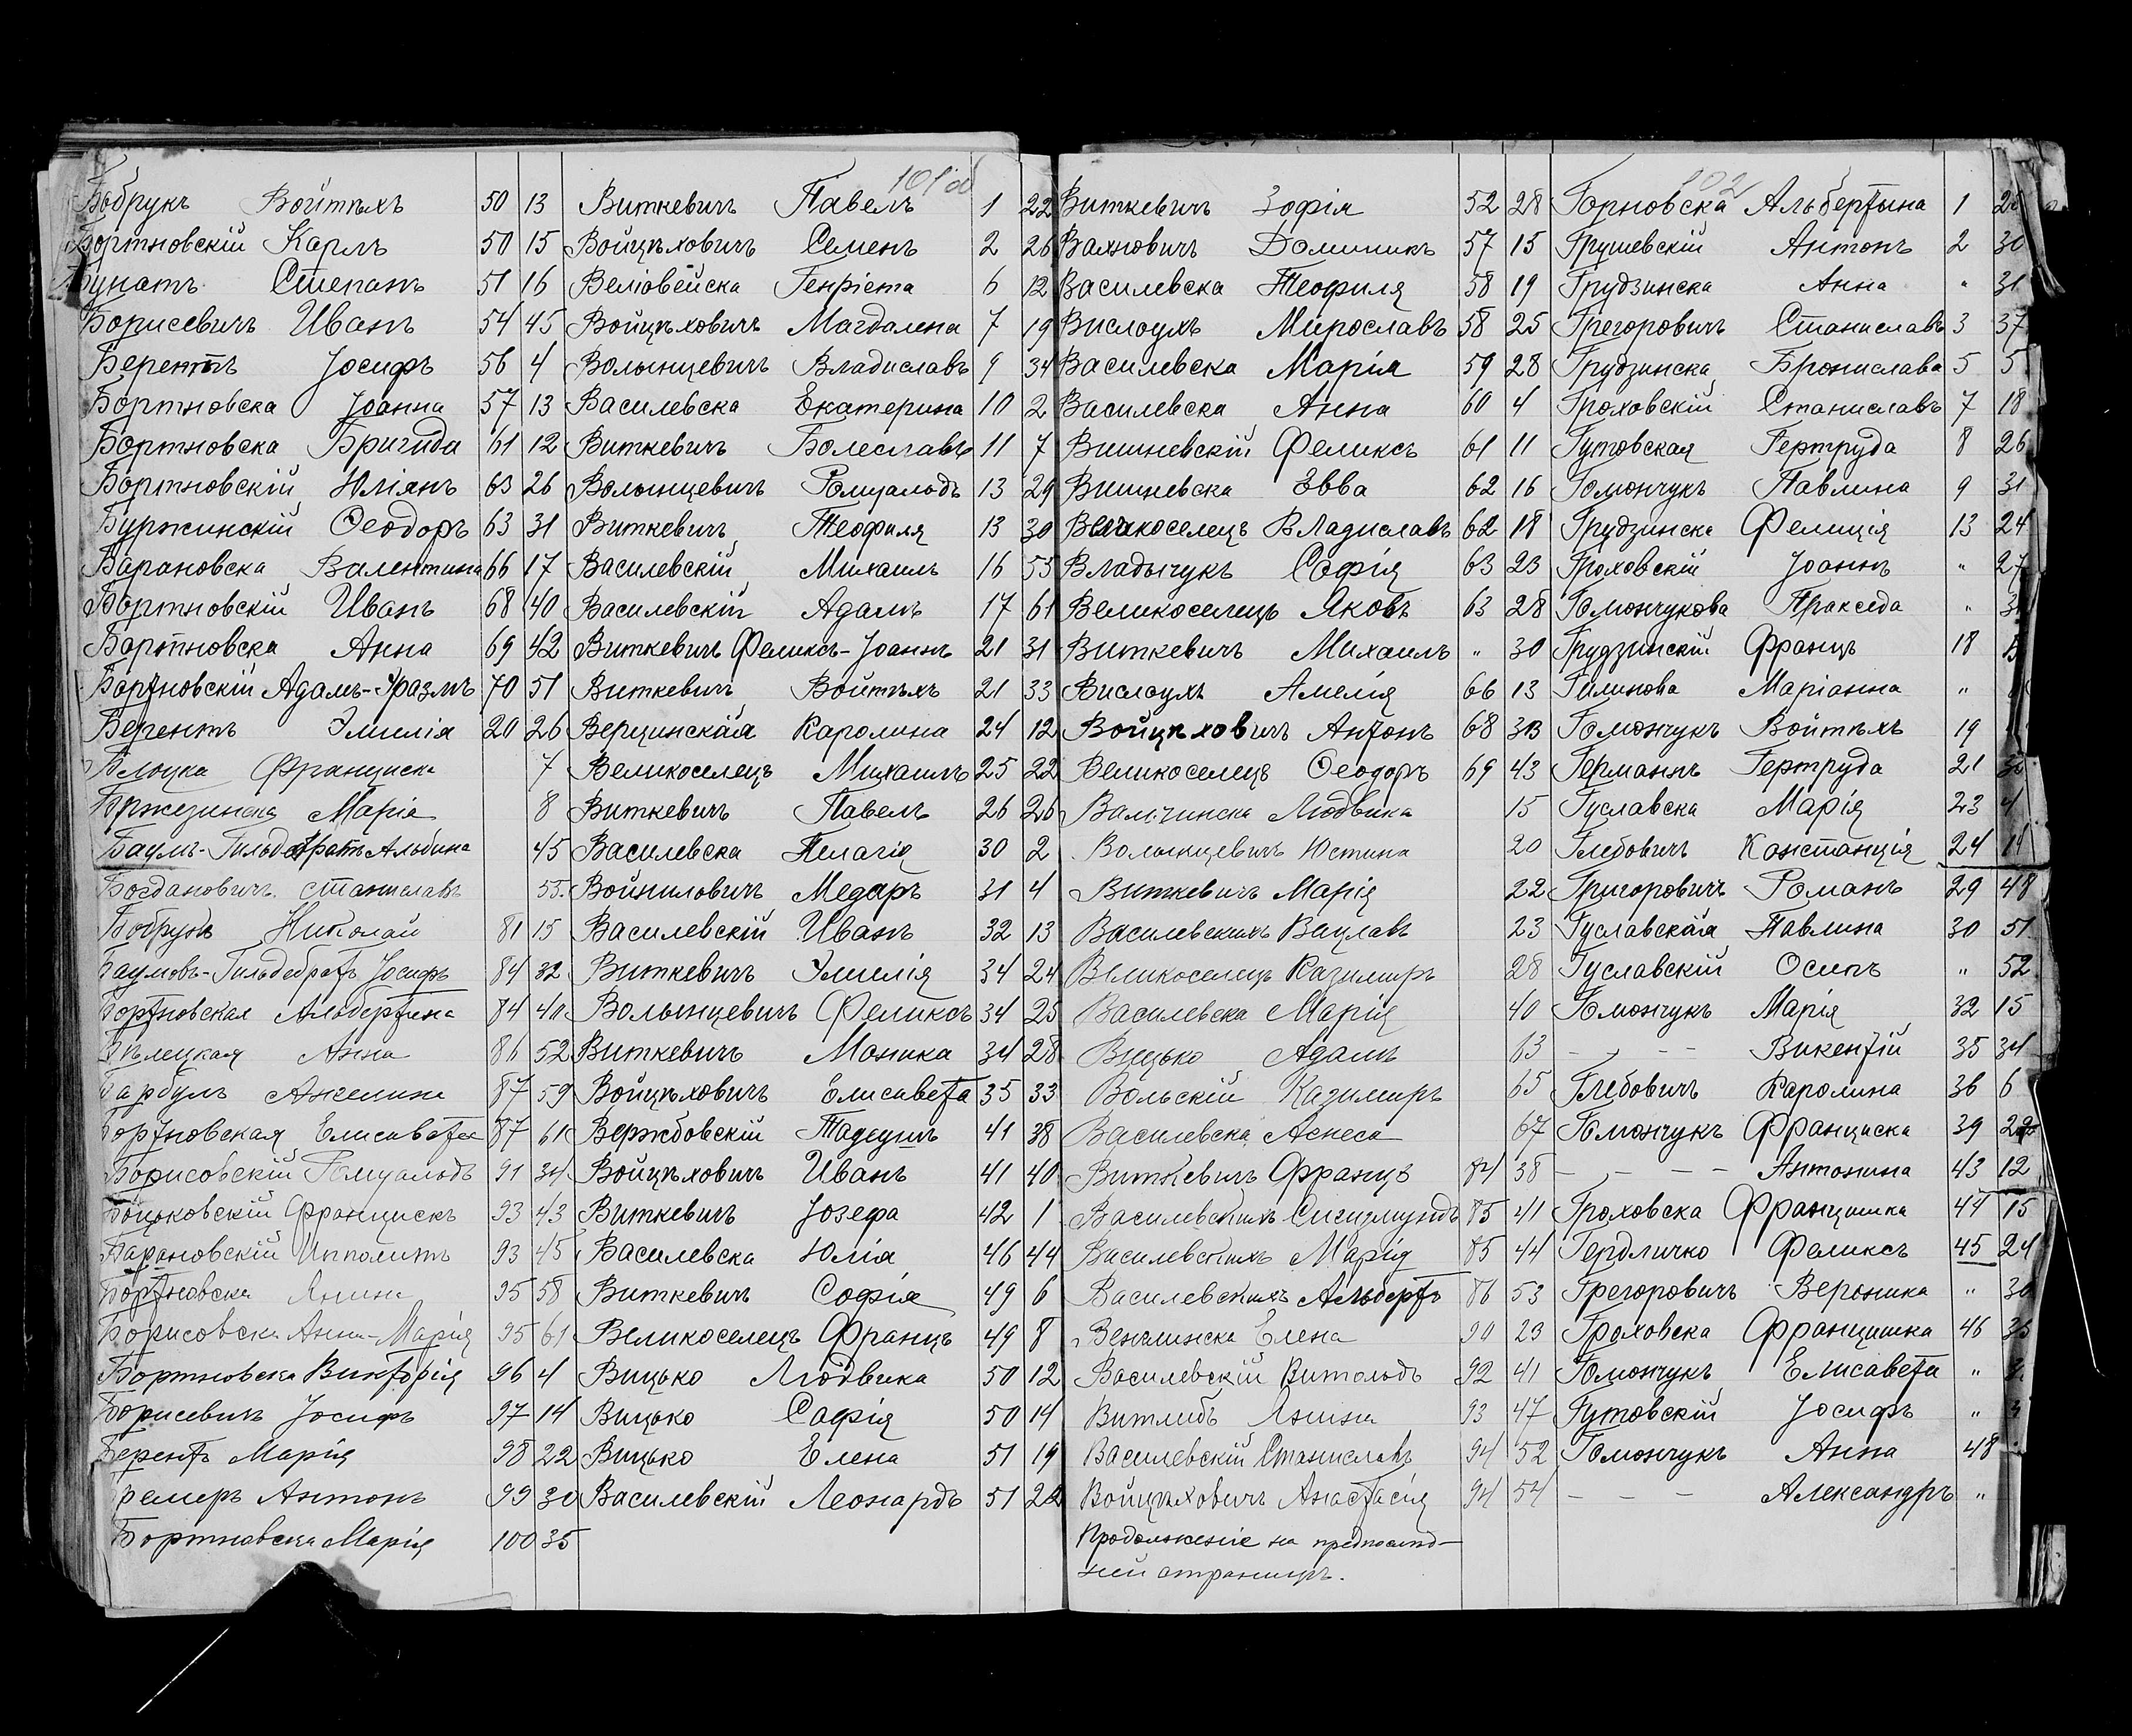 101об
Бобрукъ Войтѣхъ 50 13
Бортновскій Карлъ 50 15
Бунатъ Степанъ 51 16
Борисевичъ Иванъ 54 45
Берентъ Іосифъ 56 4
Бортновска Іоанна 57 13
Бортновска Бригида 61 12
Бортновскій Юліянъ 63 26
Буржинскій Ѳеодоръ 63 31
Барановска Валентина 66 17
Бортновскій Иванъ 68 40
Бортновска Анна 69 42
Бортновскій Адамъ-Эразмъ 70 51
Берентъ Эмилія 20 26
Блоцка Франциска 7
Бржезинска Марія 8
Баумъ-Гильдебратъ Альбина 45
Богдановичъ Станиславъ 55
Бобрукъ Николай 81 15
Баумовъ-Гильдебратъ Іосифъ 84 32
Бортновская Альбертина 84 40
Анна 86 52
87 59
Бортновская Елисавета 87 61
Борисовскій Ромуальдъ 91 34
Францискъ 93 43
Барановскій Ипполитъ 93 45
Бортновска Янина 95 58
Борисовска Анна-Марія 95 61
Бортновска Викторія 96 4
Борисевичъ Іосифъ 97 14
Берентъ Марія 98 22
Бремеръ Антонъ 99 30
Бортновска Марія 100 35
Виткевичъ Павелъ 1 22
Войцѣховичъ Семенъ 2 26
Веліовейска Генріета 6 12
Войцѣховичъ Магдалена 7 19
Волынцевичъ Владиславъ 9 34
Василевска Екатерина 10 2
Виткевичъ Болеславъ 11 7
Волынцевичъ Ромуальдъ 13 29
Виткевичъ Теофиля 13 30
Василевскій Михаилъ 16 55
Василевскій Адамъ 17 61
Виткевичъ Феликсъ-Іоаннъ 21 31
Виткевичъ Войтѣхъ 21 33
Верцинская Каролина 24 12
Великоселецъ Михаилъ 25 22
Виткевичъ Павелъ 26 26
Василевска Пелагія 30 2
Войниловичъ Медаръ 31 4
Василевскій Иванъ 32 13
Виткевичъ Эмилія 34 24
Волынцевичъ Феликсъ 34 25
Виткевичъ Моника 34 28
Войцѣховичъ Елисавета 35 33
Вержбовскій Тадеушъ 41 38
Войцѣховичъ Иванъ 41 40
Виткевичъ Іозефа 42 1
Василевска Юлія 46 44
Виткевичъ Софія 49 6
Великоселецъ Францъ 49 8
Вицько Людвика 50 12
Вицько Софія 50 14
Вицько Елена 51 19
Василевскій Леонардъ 51 22
102
Виткевичъ Зофія 52 28
Вахновичъ Доминикъ 57 15
Василевска Теофиля 58 19
Вислоухъ Мирославъ 58 25
Василевска Марія 59 28
Василевска Анна 60 4
Вишневскій Феликсъ 61 11
Вишневска Эвва 62 16
Великоселецъ Владиславъ 62 18
Владычукъ Софія 63 23
Великоселецъ Яковъ 63 28
Виткевичъ Михаилъ " 30
Вислоухъ Амелія 66 13
Войцѣховичъ Антонъ 68 33
Великоселецъ Ѳеодоръ 69 43
Вальчинска Людвика 15
Волынцевичъ Юстина 20
Виткевичъ Марія 22
Василевскихъ Вацлавъ 23
Великоселецъ Казимиръ 28
Василевска Марія 40
Вицько Адамъ 63
Вольскій Казимиръ 65
Василевска Агнеса 67
Виткевичъ Францъ 84 38
Василевскихъ Сигизмундъ 85 41
Василевскихъ Марія 85 44
Василевскихъ Альбертъ 86 53
Елена 90 23
Василевскій Витольдъ 92 41
Янина 93 47
Василевскій Станиславъ 94 52
Войцѣховичъ Анастасія 94 54
Продолженіе на предпослѣд-
ней страницѣ.
Горновска Альбертына 1
Грушевскій Антонъ 2 30
Грудзинска Анна " 31
Грегоровичъ Станиславъ 3 37
Грудзинска Брониславa 5 5
Гроховскій Станиславъ 7 18
Гутовская Гертруда 8 26
Гомончукъ Павлина 9 31
Грудзинска Фелиція 13 24
Гроховскій Іоаннъ " 27
Гомончукова Пракседа "
Грудзинскій Францъ 18
Гилинова Маріанна "
Гомончукъ Войтѣхъ 19
Германнъ Гертруда 21
Гуславска Марія 23 4
Глебовичъ Констанція 24
Григоровичъ Романъ 29 48
Гуславская Павлина 30 51
Гуславскій Осипъ " 52
Гомончукъ Марія 32 15
– – – Викентій 35 34
Глебовичъ Каролина 36 6
Гомончукъ Франциска 39
– – – – Антонина 43 12
Гроховска Францишка 44 15
Гердличко Феликсъ 45 24
Грегоровичъ Вероника " 30
Гроховска Францишка 46
Гомончукъ Елисавета "
Гутовскій Іосифъ "
Гомончукъ Анна 48
– – – Александръ "